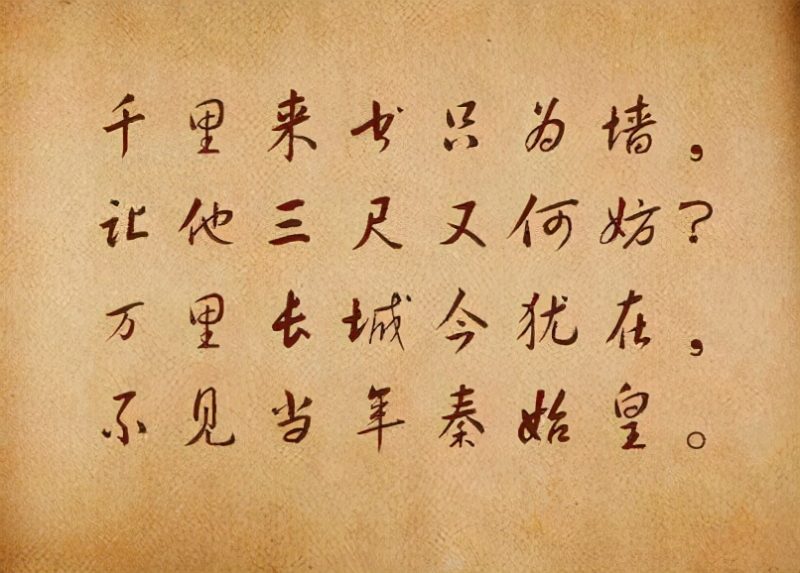 千里来书只为墙，
让他三尺又何妨？
万里长城今犹在，
不见当年秦始皇。